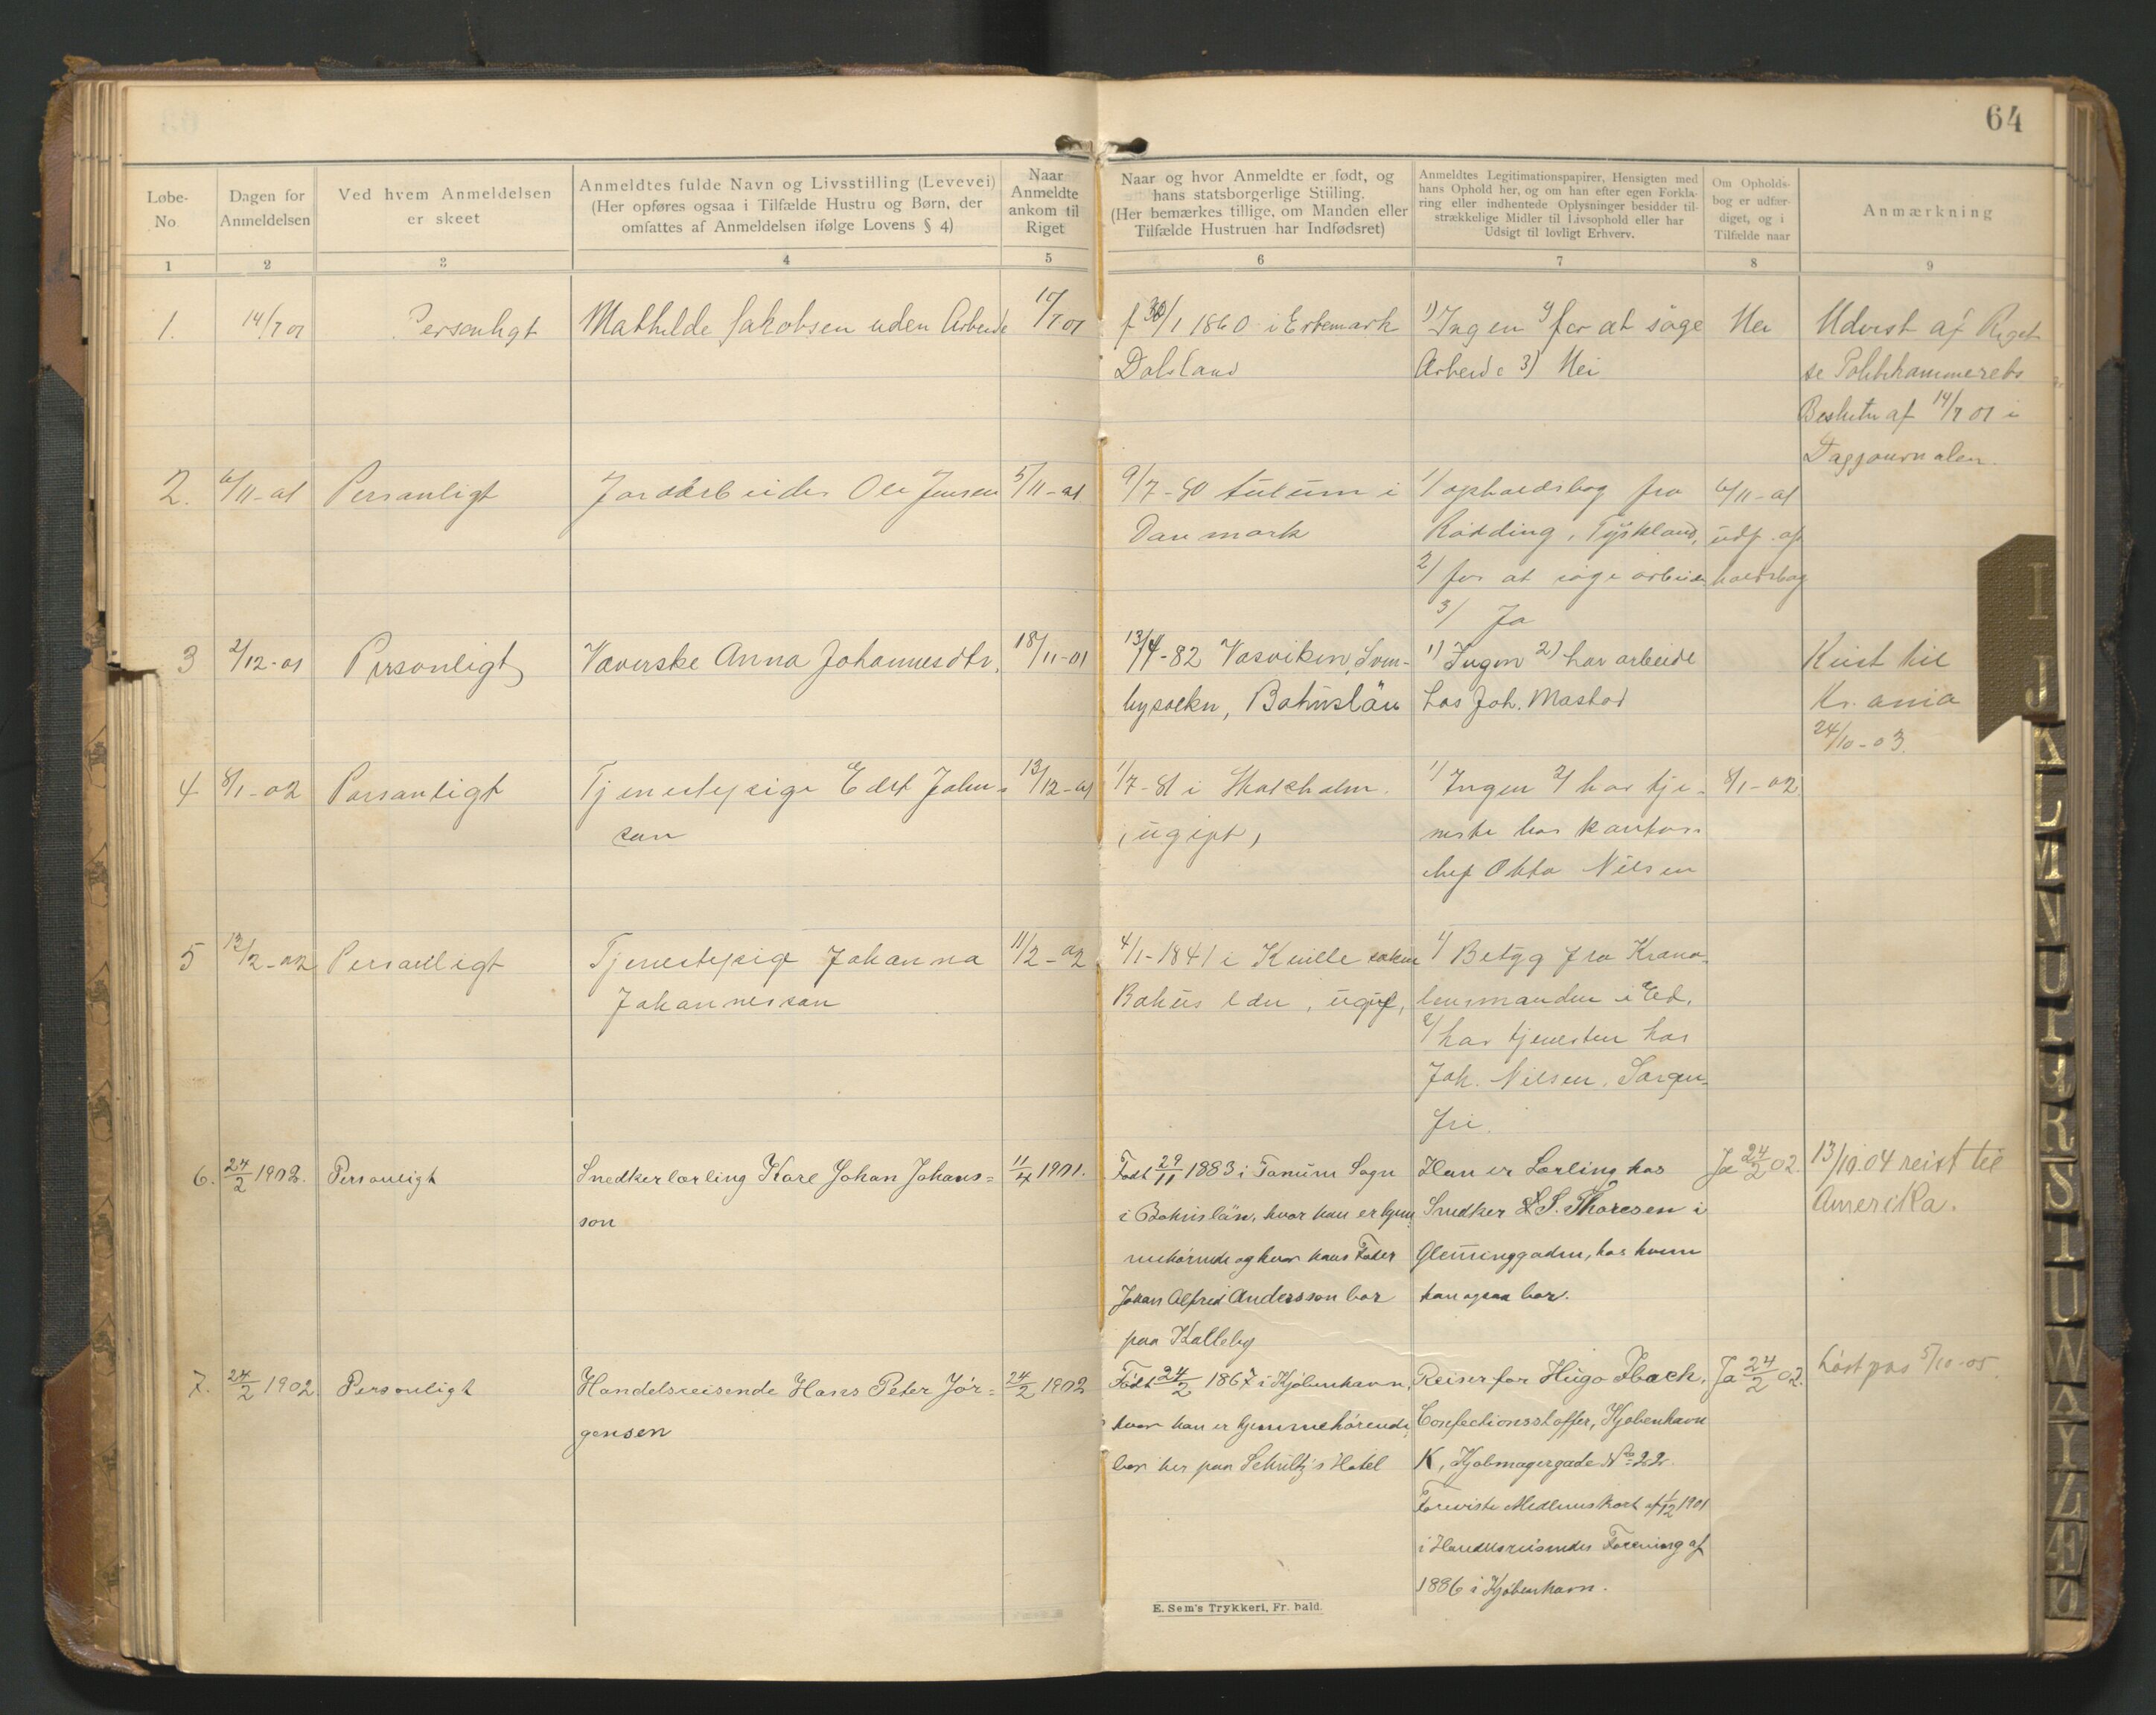 64
Løbe-
No.
Dagen for
Anmeldelsen
Ved hvem Anmeldelsen
er skeet
Anmeldtes fulde Navn og Livsstilling (Levevei)
(Her opføres ogsaa i Tilfælde Hustru og Børn, der
omfattes af Anmeldelsen ifølge Lovens § 4)
Naar
Anmeldte
ankom til
Riget
Naar og hvor Anmeldte er født, og
hans statsborgerlige Stilling.
(Her bemærkes tillige, om Manden eller
Tilfælde Hustruen har Indfødsret)
Anmeldtes Legitimationspapirer, Hensigten med
hans Ophold her, og om han efter egen Forkla-
ring eller indhentede Oplysninger besidder til-
strækkelige Midler til Livsophold eller har
Udsigt til lovligt Erhverv.
Om Opholds-
bog er udfær-
diget, og i
Tilfælde naar
Anmærkning
1 2 3 4 5 6 7 8 9
1. 14/7 01 Personligt Mathilde Jakobsen uden Arbeide 14/7 01
f 30/1 1860 i Ertemark
Dalsland
1) Ingen 2) for at søge
Arbeide 3) Nei
Nei
Udvist af Riget
se Politikammerets
Beslutn af 14/7 01 i
Dagjournalen.
2. 6/11-01 Personligt Jordarbeider Ole Jensen 5/11-01
9/7-80 i
Danmark
1/ opholdsbog fra
Rødding, Tyskland,
2/ for at søge arbeide
3/ Ja
6/11-01
udf. op
holdsbog
3 2/12-01 Personligt Væverske Anna Johannesdtr. 18/11-01
13/4-82 Vasviken, Svenn-
bysoekn, Bohuslän
1) Ingen 2) har arbeide
hos Joh. Mastad
Reist til
Kr.ania
24/10-03.
4 8/1-02 Personligt Tjenestepige Edit John- 13/12-01
son
1/7-81 i Stockholm.
, ugift,
1/ Ingen 2/ har tje-
neste hos kontor-
chef Otto Nilsen
8/1-02.
5 12/2-02 Personligt Tjenestepige Johanna 11/2-02
Johannesson
4/1-1841 i Kville sokn
Bohus län, ugift,
1/ Betyg fra Krono-
lensmanden i Ed.
2/ har tjenesten hos
Joh. Nilsen, Sorgen-
fri.
6. 24/2 1902. Personligt Snedkerlærling Karl Johan Johans= 11/4 1901.
son
Født 29/11 1883 i Tanum Sogn
i Bohuslän, hvor han er hjem
mehørende og hvor hans Fader
Johan Alfred Andersson bor
paa Kalleby
Han er Lærling hos
Snedker S. Thoresen i
Glemminggaden, hos hvem
han ogsaa bor.
Ja 24/2 02.
13/10.04 reist til
Amerika.
7. 24/2 1902. Personligt Handelsreisende Hans Peter Jør= 24/2 1902
gensen
Født 24/2 1867 i Kjøbenhavn,
hvor han er hjemmehørende,
bor her paa Schultz's Hotel
Reiser for Hugo Ibach,
Confectionsstoffer, Kjøbenhavn
K, Kjøbmagergade No 22.
Foreviste Medlemskort af 1/12 1901
i Handelsreisendes Forening af
1886 i Kjøbenhavn.
Ja 24/2 02.
Løst pas 5/10-05
E. Sem's Trykkeri, Fr. hald.
I
J